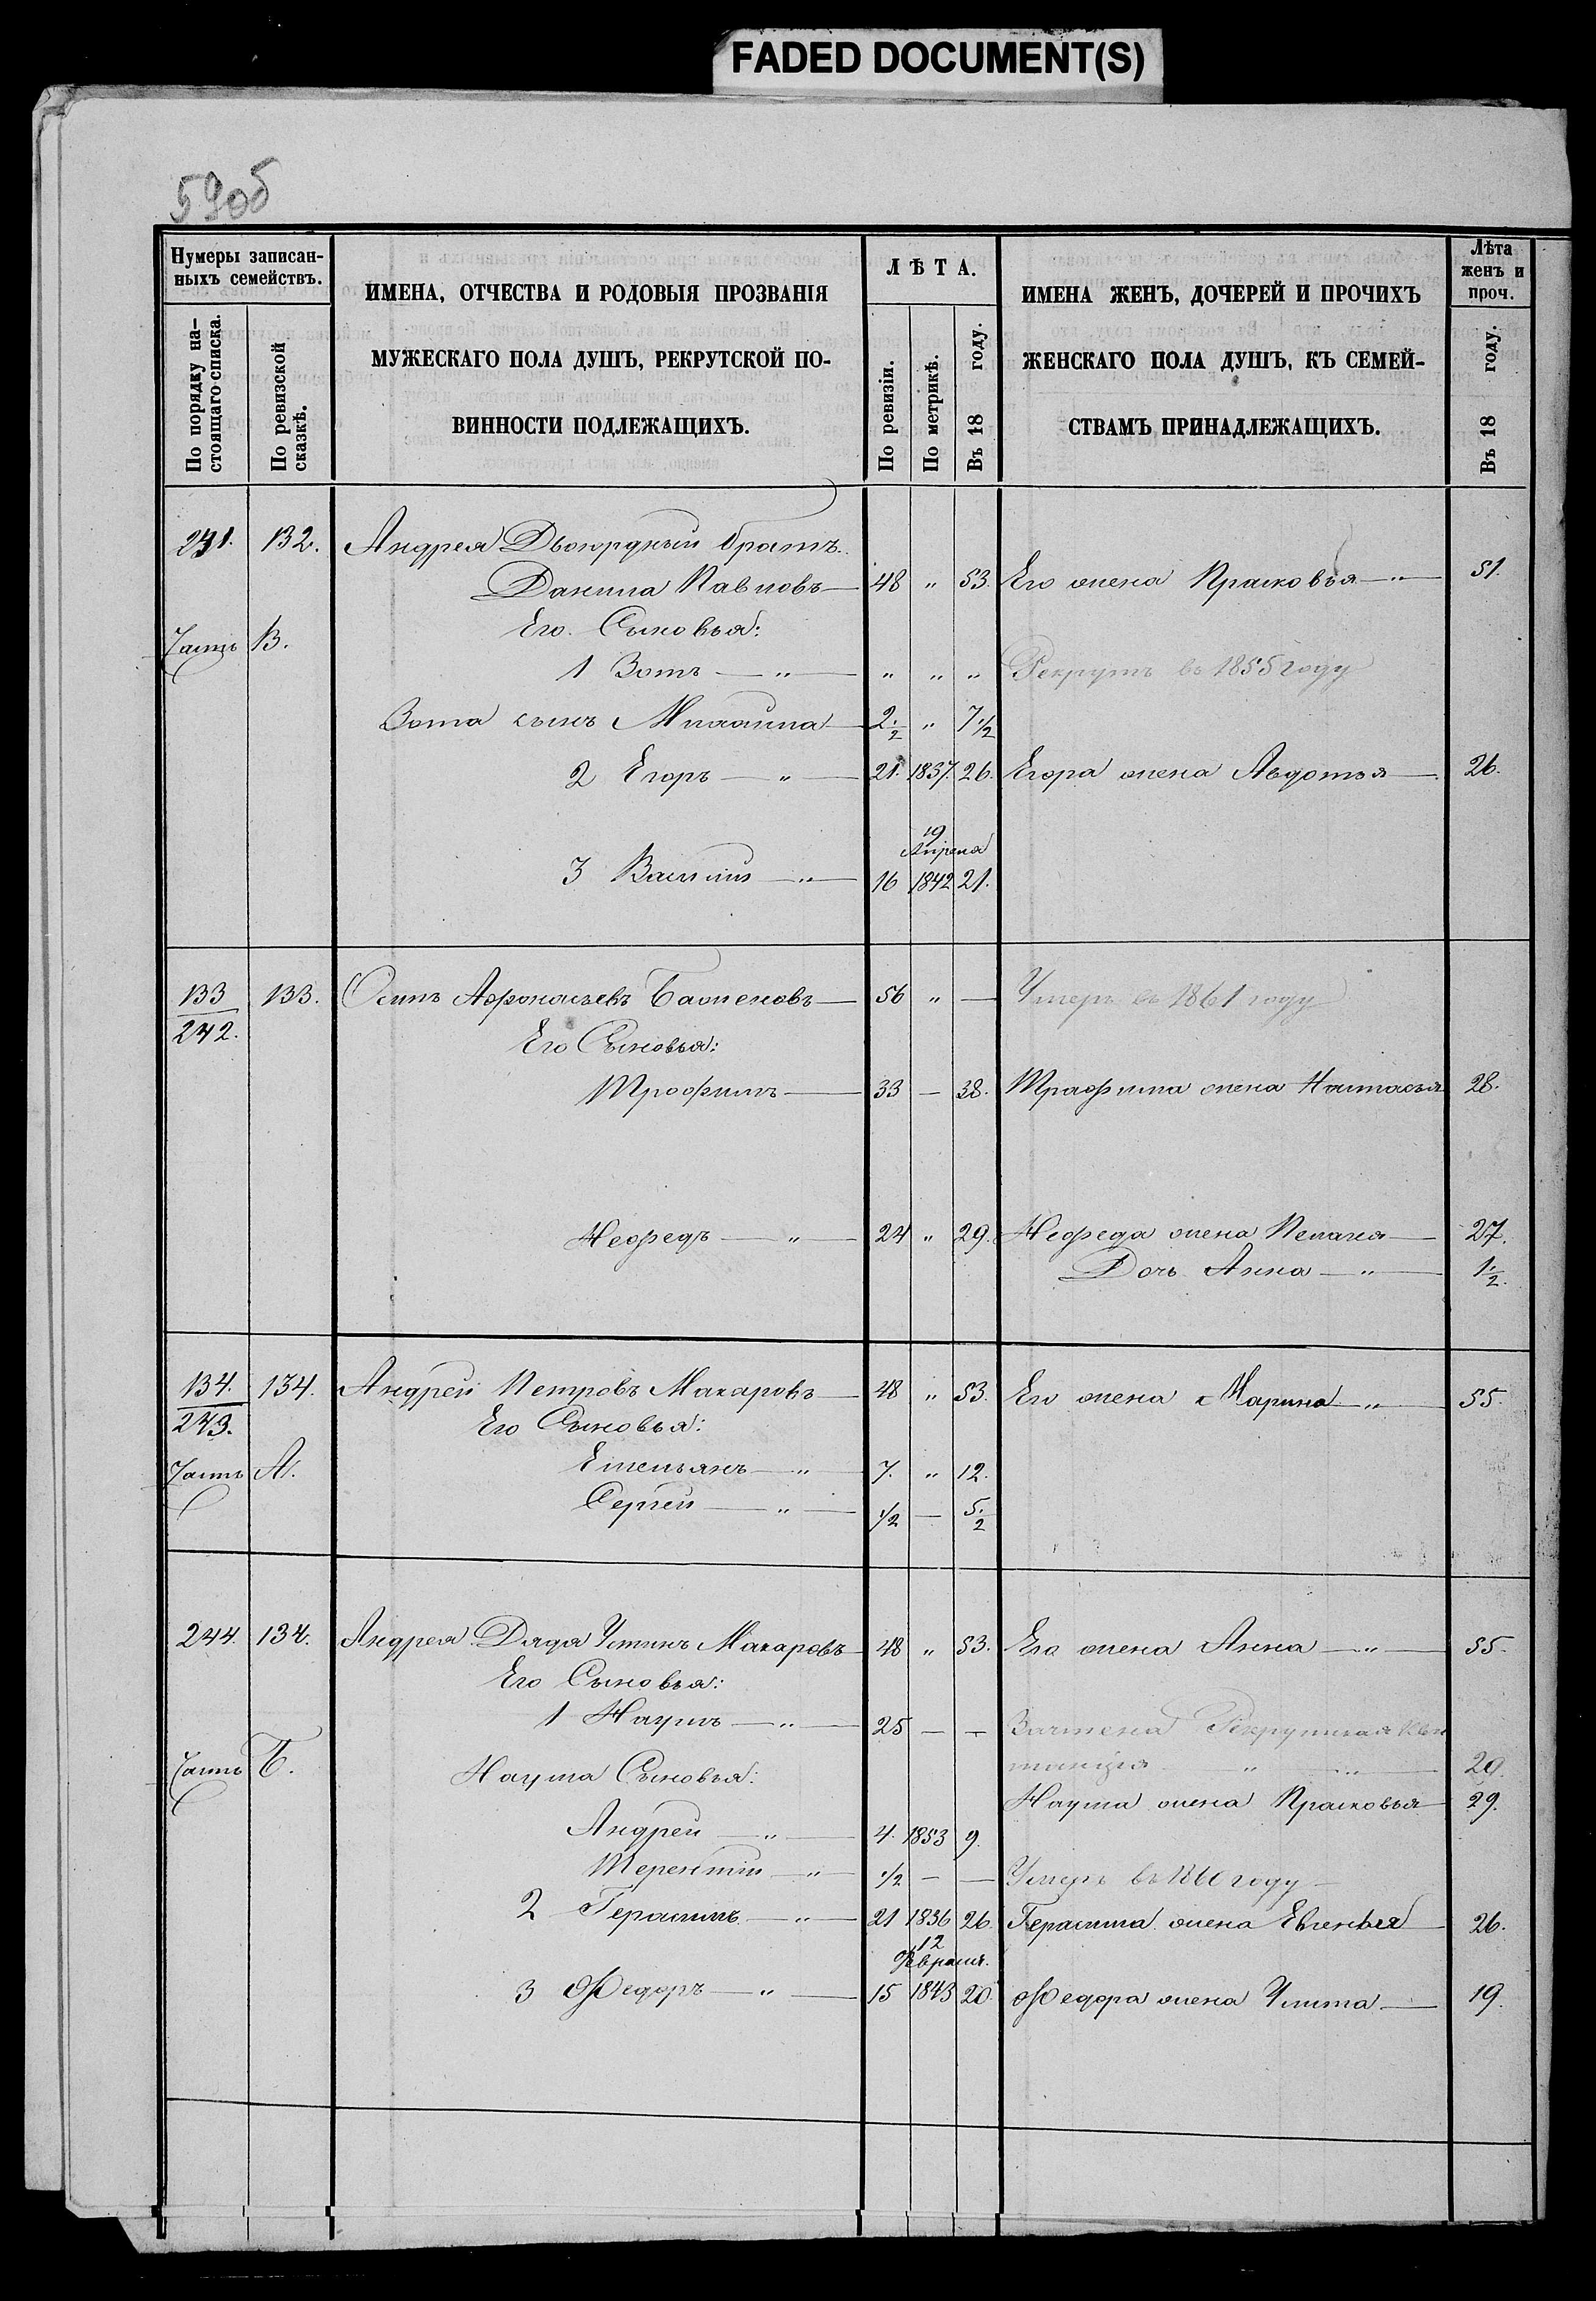 FADED DOCUMENT(S)
59об
Нумеры записан-
ныхъ семействъ.
По порядку на-
стоящаго списка.
По ревизской
сказкѣ.
ИМЕНА, ОТЧЕСТВА И РОДОВЫЯ ПРОЗВАНІЯ
МУЖЕСКАГО ПОЛА ДУШЪ, РЕКРУТСКОЙ ПО-
ВИННОСТИ ПОДЛЕЖАЩИХЪ.
ЛѢТА.
По ревизіи.
По метрикѣ.
Въ 18 году.
ИМЕНА ЖЕНЪ, ДОЧЕРЕЙ И ПРОЧИХЪ
ЖЕНСКАГО ПОЛА ДУШЪ, КЪ СЕМЕЙ-
СТВАМЪ ПРИНАДЛЕЖАЩИХЪ.
Лѣта
женъ и
проч.
Въ 18 году.
241. 132. Андрея Двоюрдный братъ.
Данила Павловъ — 48 " 53. Его жена Прасковья — " — 51.
Часть В. Его Сыновья:
1 Зотъ — " — " " " Рекрутъ въ 1855 году
Зота сынъ Михаила — 2 1/2 " 7 1/2
2 Егоръ — " — 21. 1837. 26. Егора жена Авдотья — 26.
19
Апреля
3 Василий — " — 16 1842 21.
133 133. Осипъ Афонасьевъ Баженовъ — 56 " — Умеръ въ 1861 году
242.
Его Сыновья:
Трофимъ — 33 — 38. Трафима жена Настасья 28.
Нефедъ — " — 24 " 29. Нефеда жена Пелагея — 27.
Дочь Анна — " — 1 1/2.
134. 134. Андрей Петровъ Макаровъ — 48 " 53. Его жена Марина — " — 55.
243.
Его Сыновья:
Часть А. Емельянъ — " — 7. " 12.
Сергей — " — 1/2 — 5 1/2
244. 134. Андрея Дядя Устинъ Макаровъ — 48 " 53. Его жена Анна — " — 55.
Его Сыновья:
1 Наумъ — " — 25 — — Зачтена Рекрутская Кви
Часть Б. Наума Сыновья: танция " — " — 29.
Наума жена Прасковья — 29.
Андрей — " — 4. 1853 9.
Терентий — " — 1/2 — — Умеръ въ 1860 году —
2 Герасимъ — " — 21 1836 26. Герасима жена Евгенья — 26.
12
Февраля.
3 Федоръ — " — 15 1843 20. Федора жена Улита — 19.